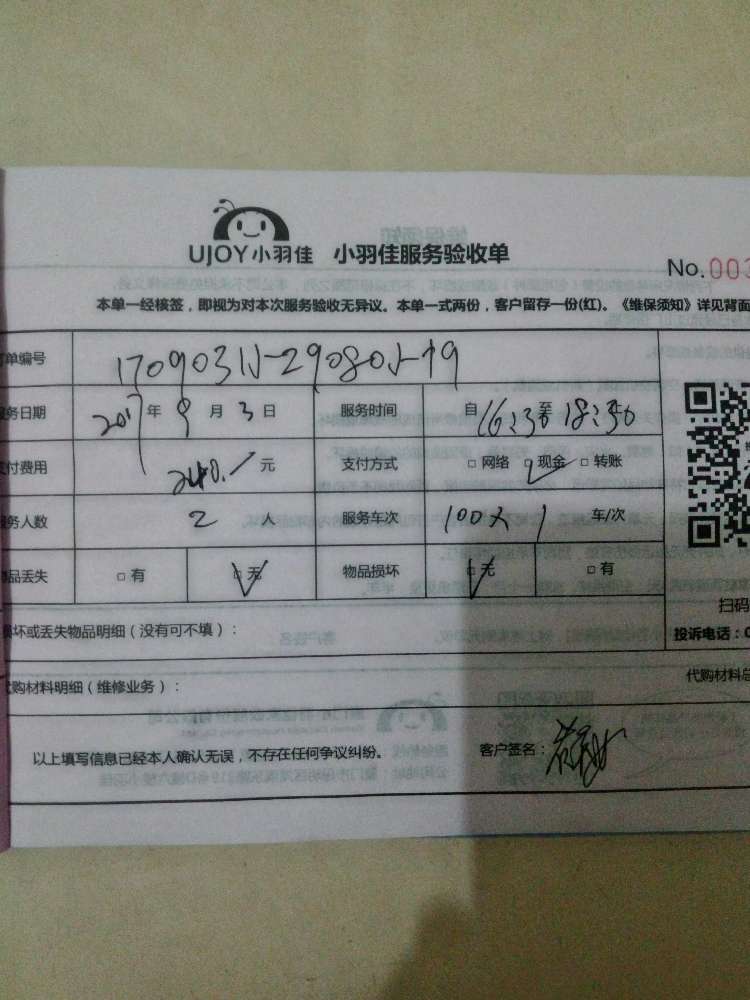 UJOY小羽佳 小羽佳服务验收单
No.003
本单一经核签，即视为对本次服务验收无异议。本单一式两份，客户留存一份(红)。《维保须知》详见背面
单编号
务日期 2017年9月3日 服务时间 自16:30至18:30
付费用 240.元 支付方式 □网络 □现金 □转账
务人数 2人 服务车次 1 车/次
品丢失 □有 □无 物品损坏 □无 □有
扫码
损坏或丢失物品明细（没有可不填）： 投诉电话：0
购材料明细（维修业务）： 代购材料总
以上填写信息已经本人确认无误，不存在任何争议纠纷。 客户签名：